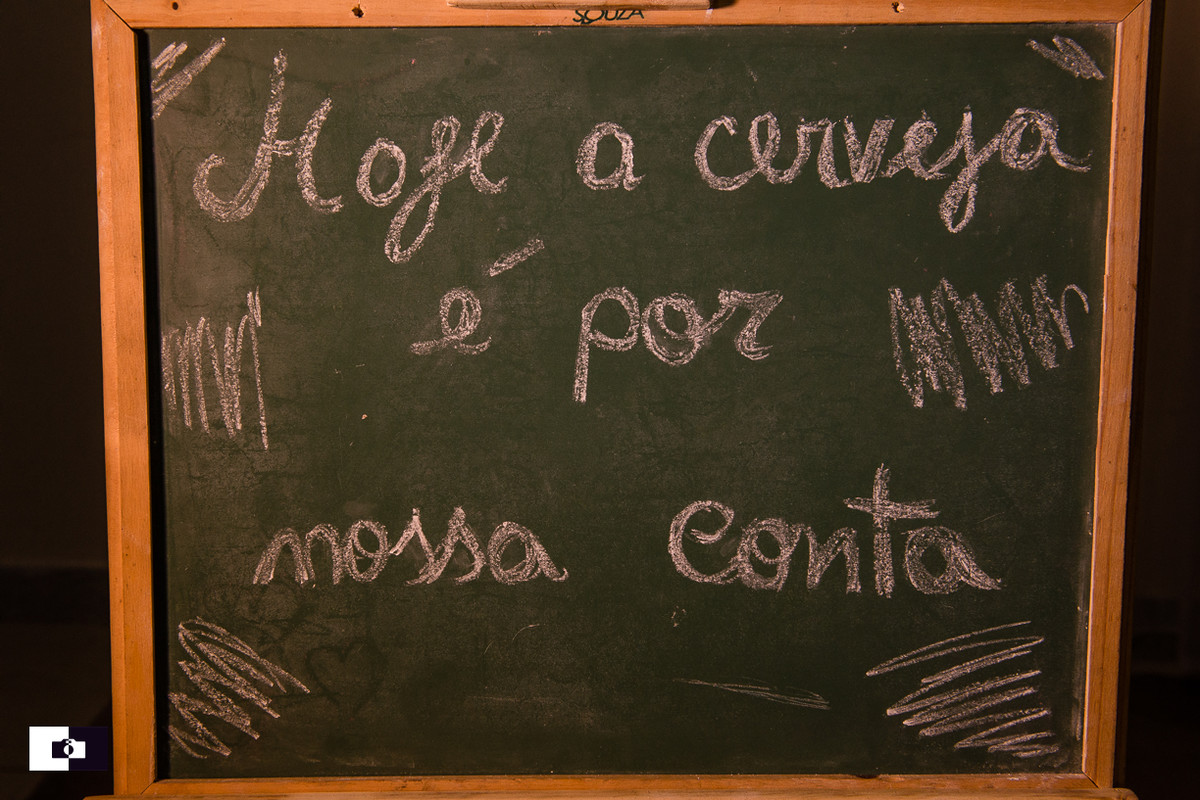 SOUZA
Hoje a cerveja
é por
nossa conta